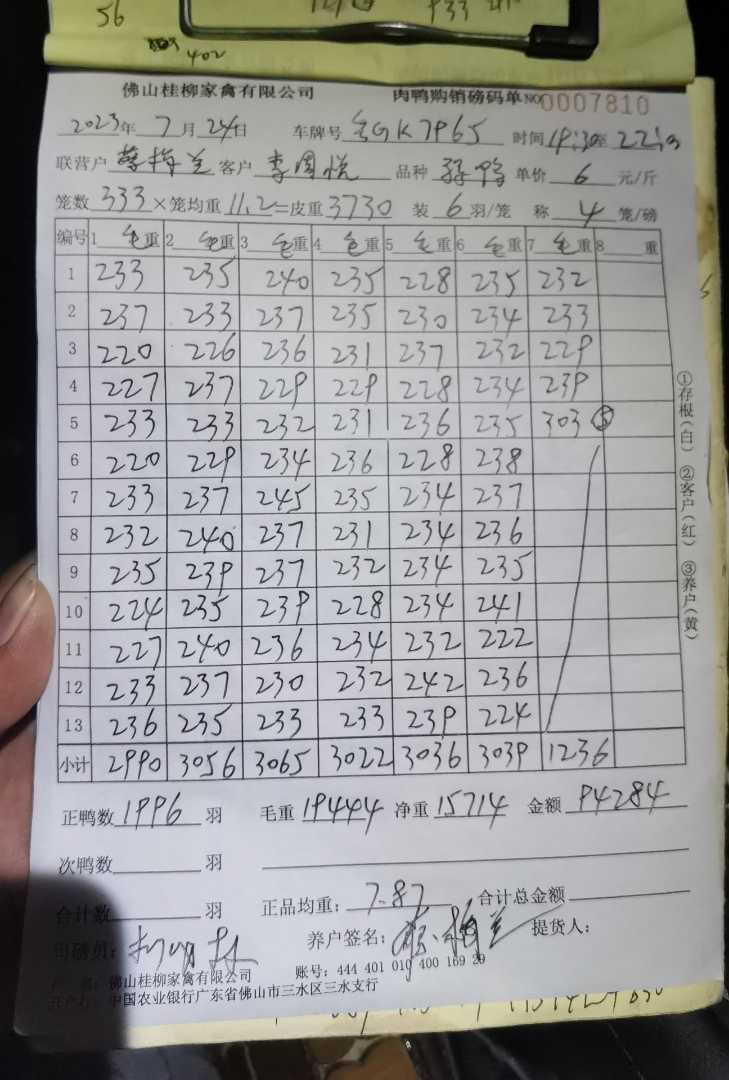 56
402
佛山桂柳家禽有限公司 肉鸭购销磅码单 NO 0007810
2023年 7月 24日 车牌号 GK7P65 时间19:30至22:
联营户 客户 李周悦 品种 鸭 单价 6 元/斤
笼数 333 ×笼均重 11.2 =皮重 3730 装 6 羽/笼 称 4 笼/磅
编号 1 毛重 2 毛重 3 毛重 4 毛重 5 毛重 6 毛重 7 毛重 8 重
1 233 235 240 235 228 235 232
2 237 233 237 235 230 234 233
3 220 226 236 231 237 232 229
4 227 237 229 229 228 234 239
5 233 233 232 231 236 235 303 ⑤
6 220 229 234 236 228 238
7 233 237 245 235 234 237
8 232 240 237 231 234 236
9 235 239 237 232 234 235
10 224 235 239 228 234 241
11 227 240 236 234 232 222
12 233 237 230 232 242 236
13 236 235 233 233 239 224
小计 2990 3056 3065 3022 3036 3039 1236
正鸭数 1996 羽 毛重 19444 净重 15714 金额 94284
次鸭数 羽
合计数 羽 正品均重： 7.87 合计总金额
司磅员： 养户签名： 提货人：
户 名：佛山桂柳家禽有限公司 账号：444 401 010 400 169 29
开户行：中国农业银行广东省佛山市三水区三水支行
①存根（白） ②客户（红） ③养户（黄）